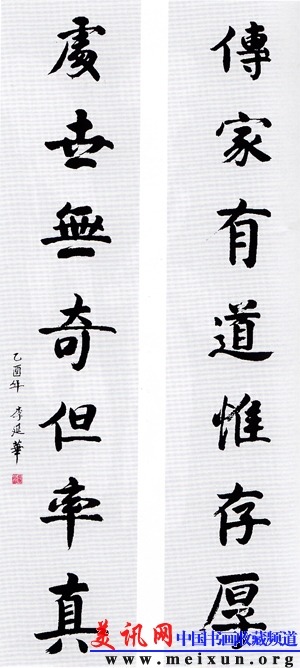 傳家有道惟存厚
處世無奇但率真
乙酉年 李延華
美讯网 中国书画收藏频道
www.meixun.org